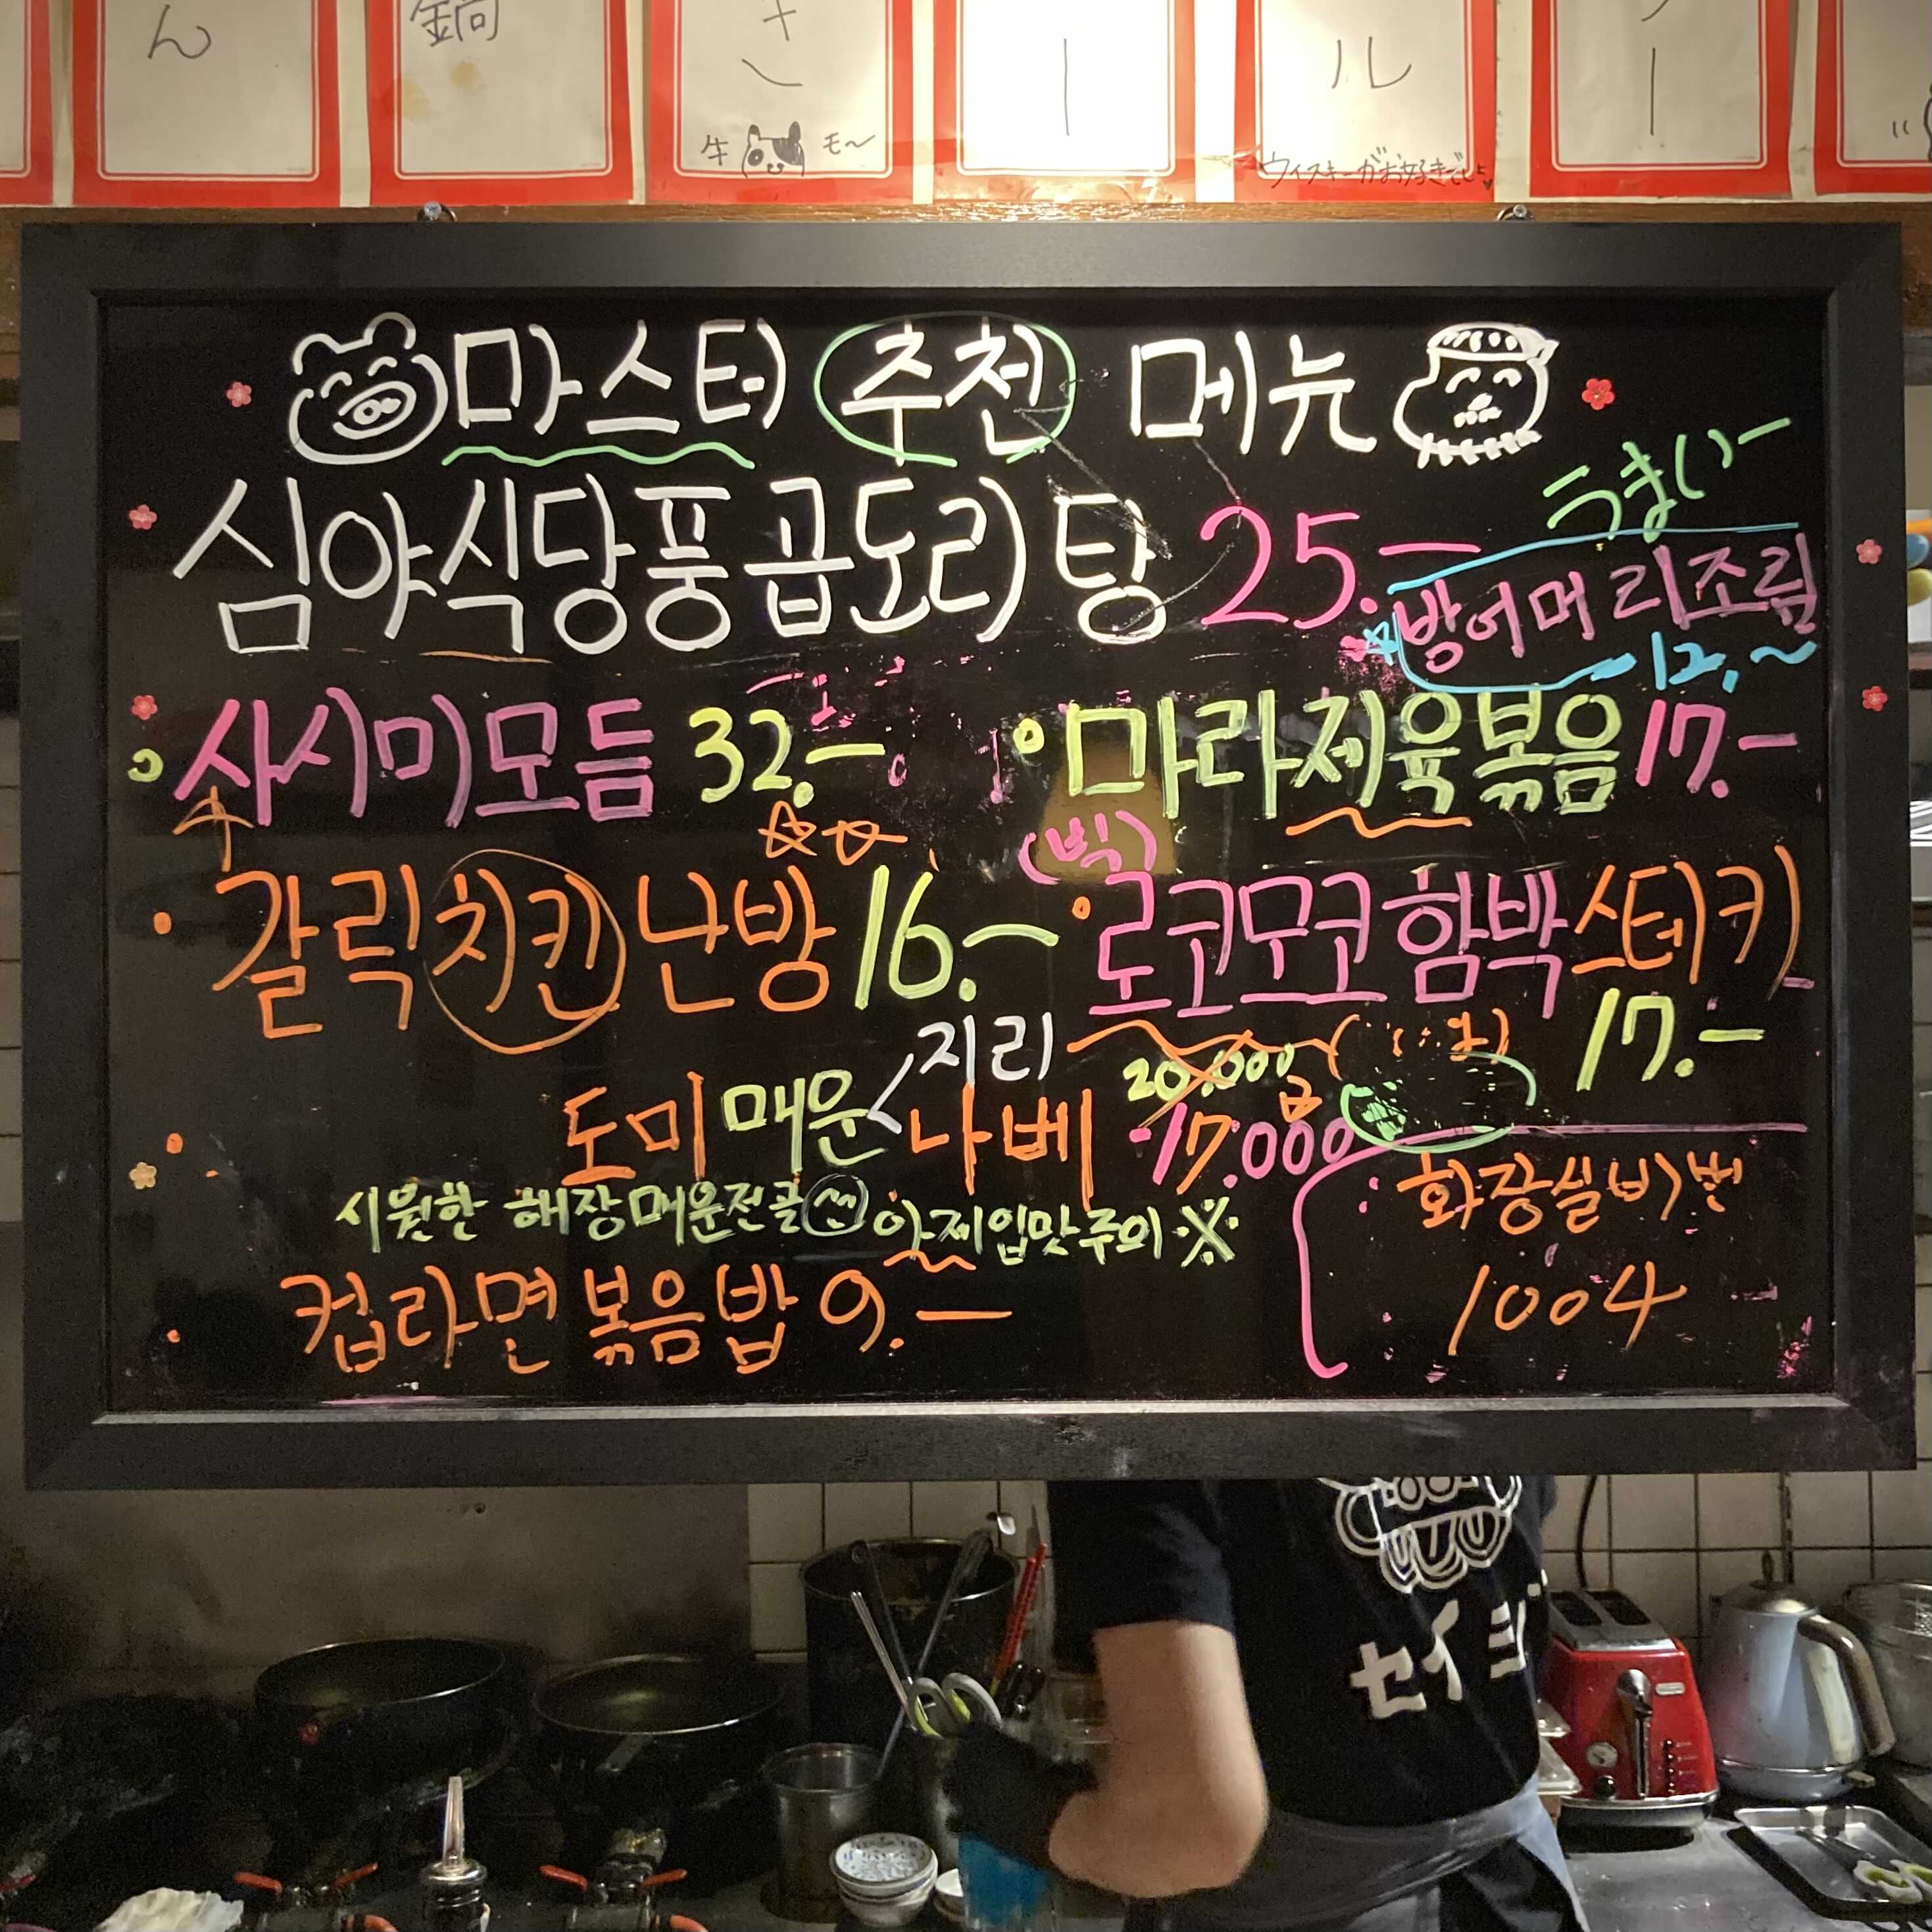 ん
鍋
キ
ー
ル
ー
牛 モ〜
ウイスキーがお好きでしょ
마스터 추천 메뉴
심야식당풍 곱도리탕 25.-
うまいー
방어머리조림
12.~
사시미모듬 32.-
마라제육볶음 17.-
갈릭치킨난방 16.-
(빅)
로코모코함박스테키
17.-
지리
도미 매운 나베 20.000 17.000
시원한 해장매운전골 아재입맛주의 ※
컵라면볶음밥 9.-
화장실비번
1004
セイジ